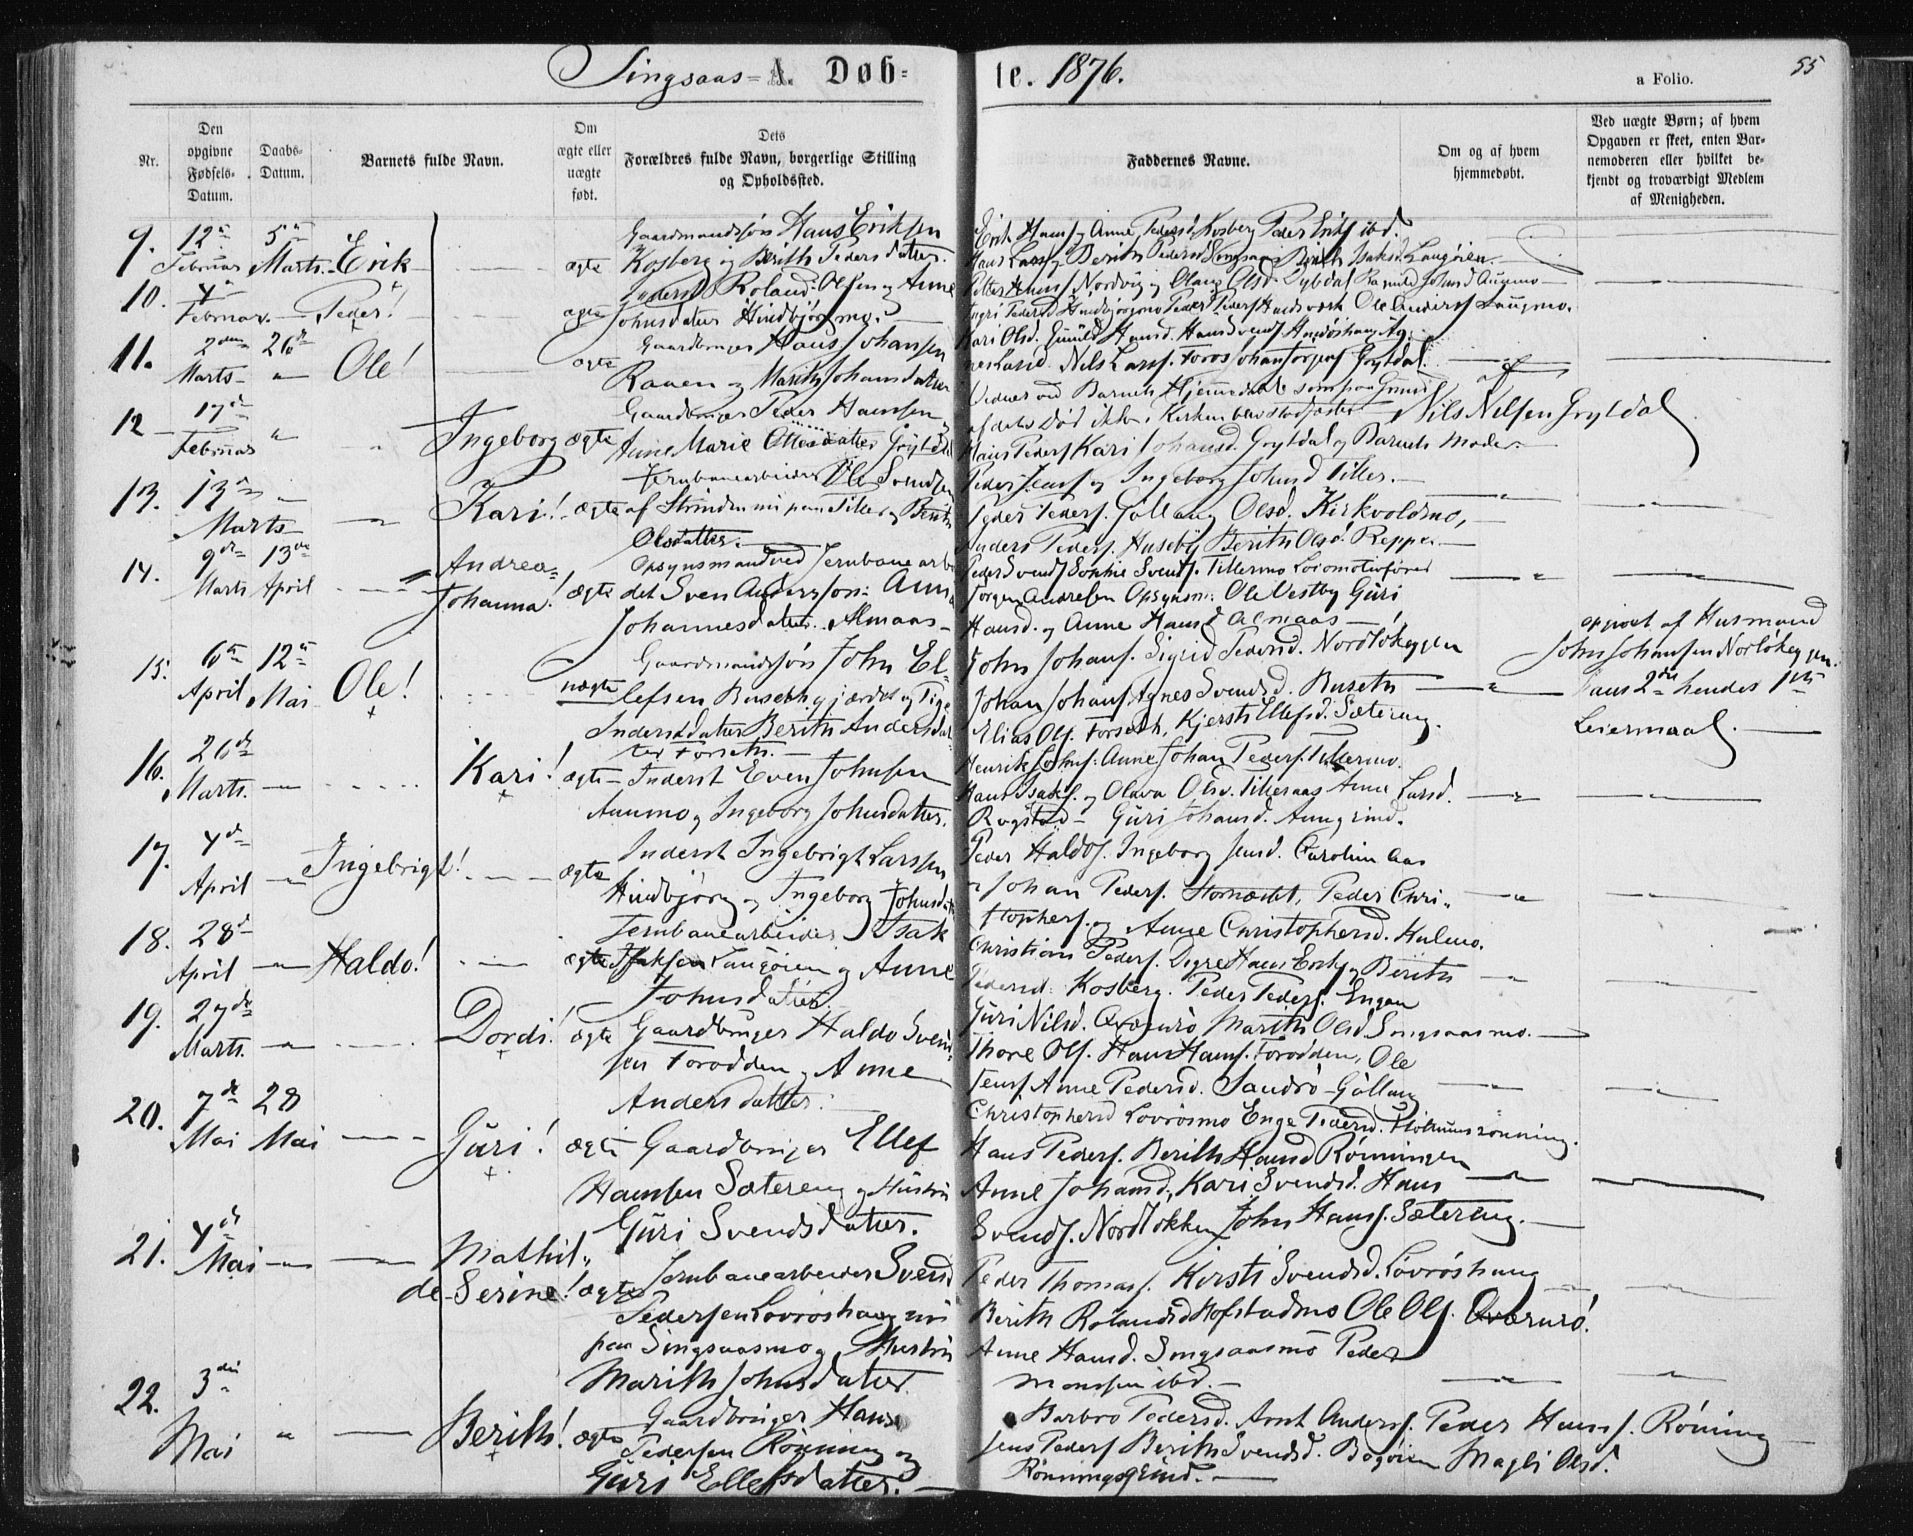 Singsaas - A. Døb=
te. 1876.
a Folio.
55
Nr.
Den opgivne Fødsels-Datum.
Daabs-Datum.
Barnets fulde Navn.
Om ægte eller uægte født.
Dets Forældres fulde Navn, borgerlige Stilling og Opholdssted.
Faddernes Navne.
Om og af hvem hjemmedøbt.
Ved uægte Børn; af hvem Opgaven er skeet, enten Barnemoderen eller hvilket bekjendt og troværdigt Medlem af Menigheden.
9. 12te Februar 5te Marts. Erik ægte
Gaardmandssøn Hans Eriksen
Kosberg og Berith Pedersdatter.
Erik Hansf og Anne Pedersd. Kosberg Peder Erikf ibd.
Hans Larsf Berith Pedersd Singsaas Berith Isaksd. Langøien.
10. 4de Februar. Peder! ægte
Inderst Roland Olsen og Anne
Johnsdatter Hindbjørgmo.
Petter Hansf Nordvig og Olava Olsd.
11. 2den Marts 26de Ole! ægte
Gaardbruger Hans Johansen
Raaen og Marith Johansdatter
Kari Olsd. Gunild Hansd. Hans Svendf
Nils Larsf. Foros Johan Jørgenf Grytdal.
12 17de Februar Ingeborg ægte
Gaardbruger Peder Hansen
Anne Marie Ottesdatter Grytdal
af dets Død ikke i Kirken blev stadfæstet
Hans Pedersf Kari Johansd. Grytdal og Barnets Moder.
af Nils Nilsen Grytdal
13. 13de Marts Kari! ægte
Jernbanearbeider Ole Svendsen
af Strinden nu paa Tiller og Berith
Olsdatter.
Peder Jensf og Ingeborg Johnsd Tiller.
Peder Pedersf. Gollaug Olsd. Kirkvoldmo,
Anders Pedersf. Huseby Berith Olsd. Reppe
14. 9de Marts 13de April Andrea Johanna! ægte
Opsynsmand ved Jernbanearbei
det Sven Andersson: Anna
Johannesdatter. Almaas
Peder Svendf Sophie Svendf. Tillermo Locomotivfører
Jørgen Andresen Opsynsm: Ole Vestby Guri
Hansd. og Anne Hansd Almaas
15. 6te April 12te Mai Ole! uægte
Gaardmandssøn John El-
lefsen Busethgjærdet og Pige
Inderstdatter Berith Andersdat-
ter Forseth.
John Johansf. Sigrid Pedersd. Nordløkkjen
Johan Johansf Agnes Svendsd. Buseth
Elias Olf. Forseth, Kjersti Ellefsd. Sætereng.
opgivet af Husmand
John Johansen Norløkkjen.
hans 2det hendes 1ste
Leiermaal.
16. 26de Marts. Kari! ægte
Inderst Even Johnsen
Aunmo og Ingeborg Johnsdatter.
Henrik Johnsf. Anne Johan Pedersf. Tillermo.
Hans Isaksf. og Olava Olsd. Tilleraas Anne Larsd.
Rogstad - Guri Johansd. Aungrind.
17. 4de April Ingebrigt! ægte
Inderst Ingebrigt Larssen
Hindbjørg og Ingeborg Johnsdatter
Peder Haldof. Ingeborg Jensd. Carolin Aas
Johan Pedersf. Peder Chri-
stophersf. og Anne Christophersd. Hulmo.
18. 28de April Haldo! ægte
Jernbanearbeider Isak
Isaksen Langøien og Anne
Johnsdatter.
Christian Pedersf. Digre Hans Eriksf og Berith
Pedersd. Kosberg. Peder Pedersf. Engan
19. 27de Marts. Dordi! ægte
Gaardbruger Haldo Svend-
sen Forodden og Anne
Andersdatter.
Guri Nilsd. Qværnrø, Marith Olsd Singsaasmo.
Thore Olf. Hans Hansf. Forodden, Ole
Jensf Anne Pedersd. Sandrø Gollaug
Christophersd Lovrøsmo Enge Pedersd.
20. 7de Mai 28 Mai Guri! ægte
Gaardbruger Ellef
Hansen Sætereng og Hustru
Guri Svendsdatter.
Hans Pedersf. Berith Hansd Rønningen
Anne Johansd, Kari Svendsd. Hans
Svendf. Nordløkken John Hansf. Sætereng.
21. 4de Mai Mathil-
de Serine! ægte
Jernbanearbeider Svend
Pedersen Lovrøshaug nu
paa Singsaasmo og Hustru
Marith Johnsdatter
Peder Thomasf. Kirsti Svendsd. Lovrøshaug
Berith Rolandsd Hofstadmo Ole Olf. Qværnrø!
Anne Hansd. Singsaasmo Peder
Monssen ibd.
22. 3die Mai Berith! ægte
Gaardbruger Hans
Pedersen Rønning og
Guri Ellefsdatter.
Barbro Pedersd. Arnt Andersf. Peder Hansf. Røning
Jens Pedersf Berith Svendsd. Bogøien Magli Olsd.
Rønningsgrind.